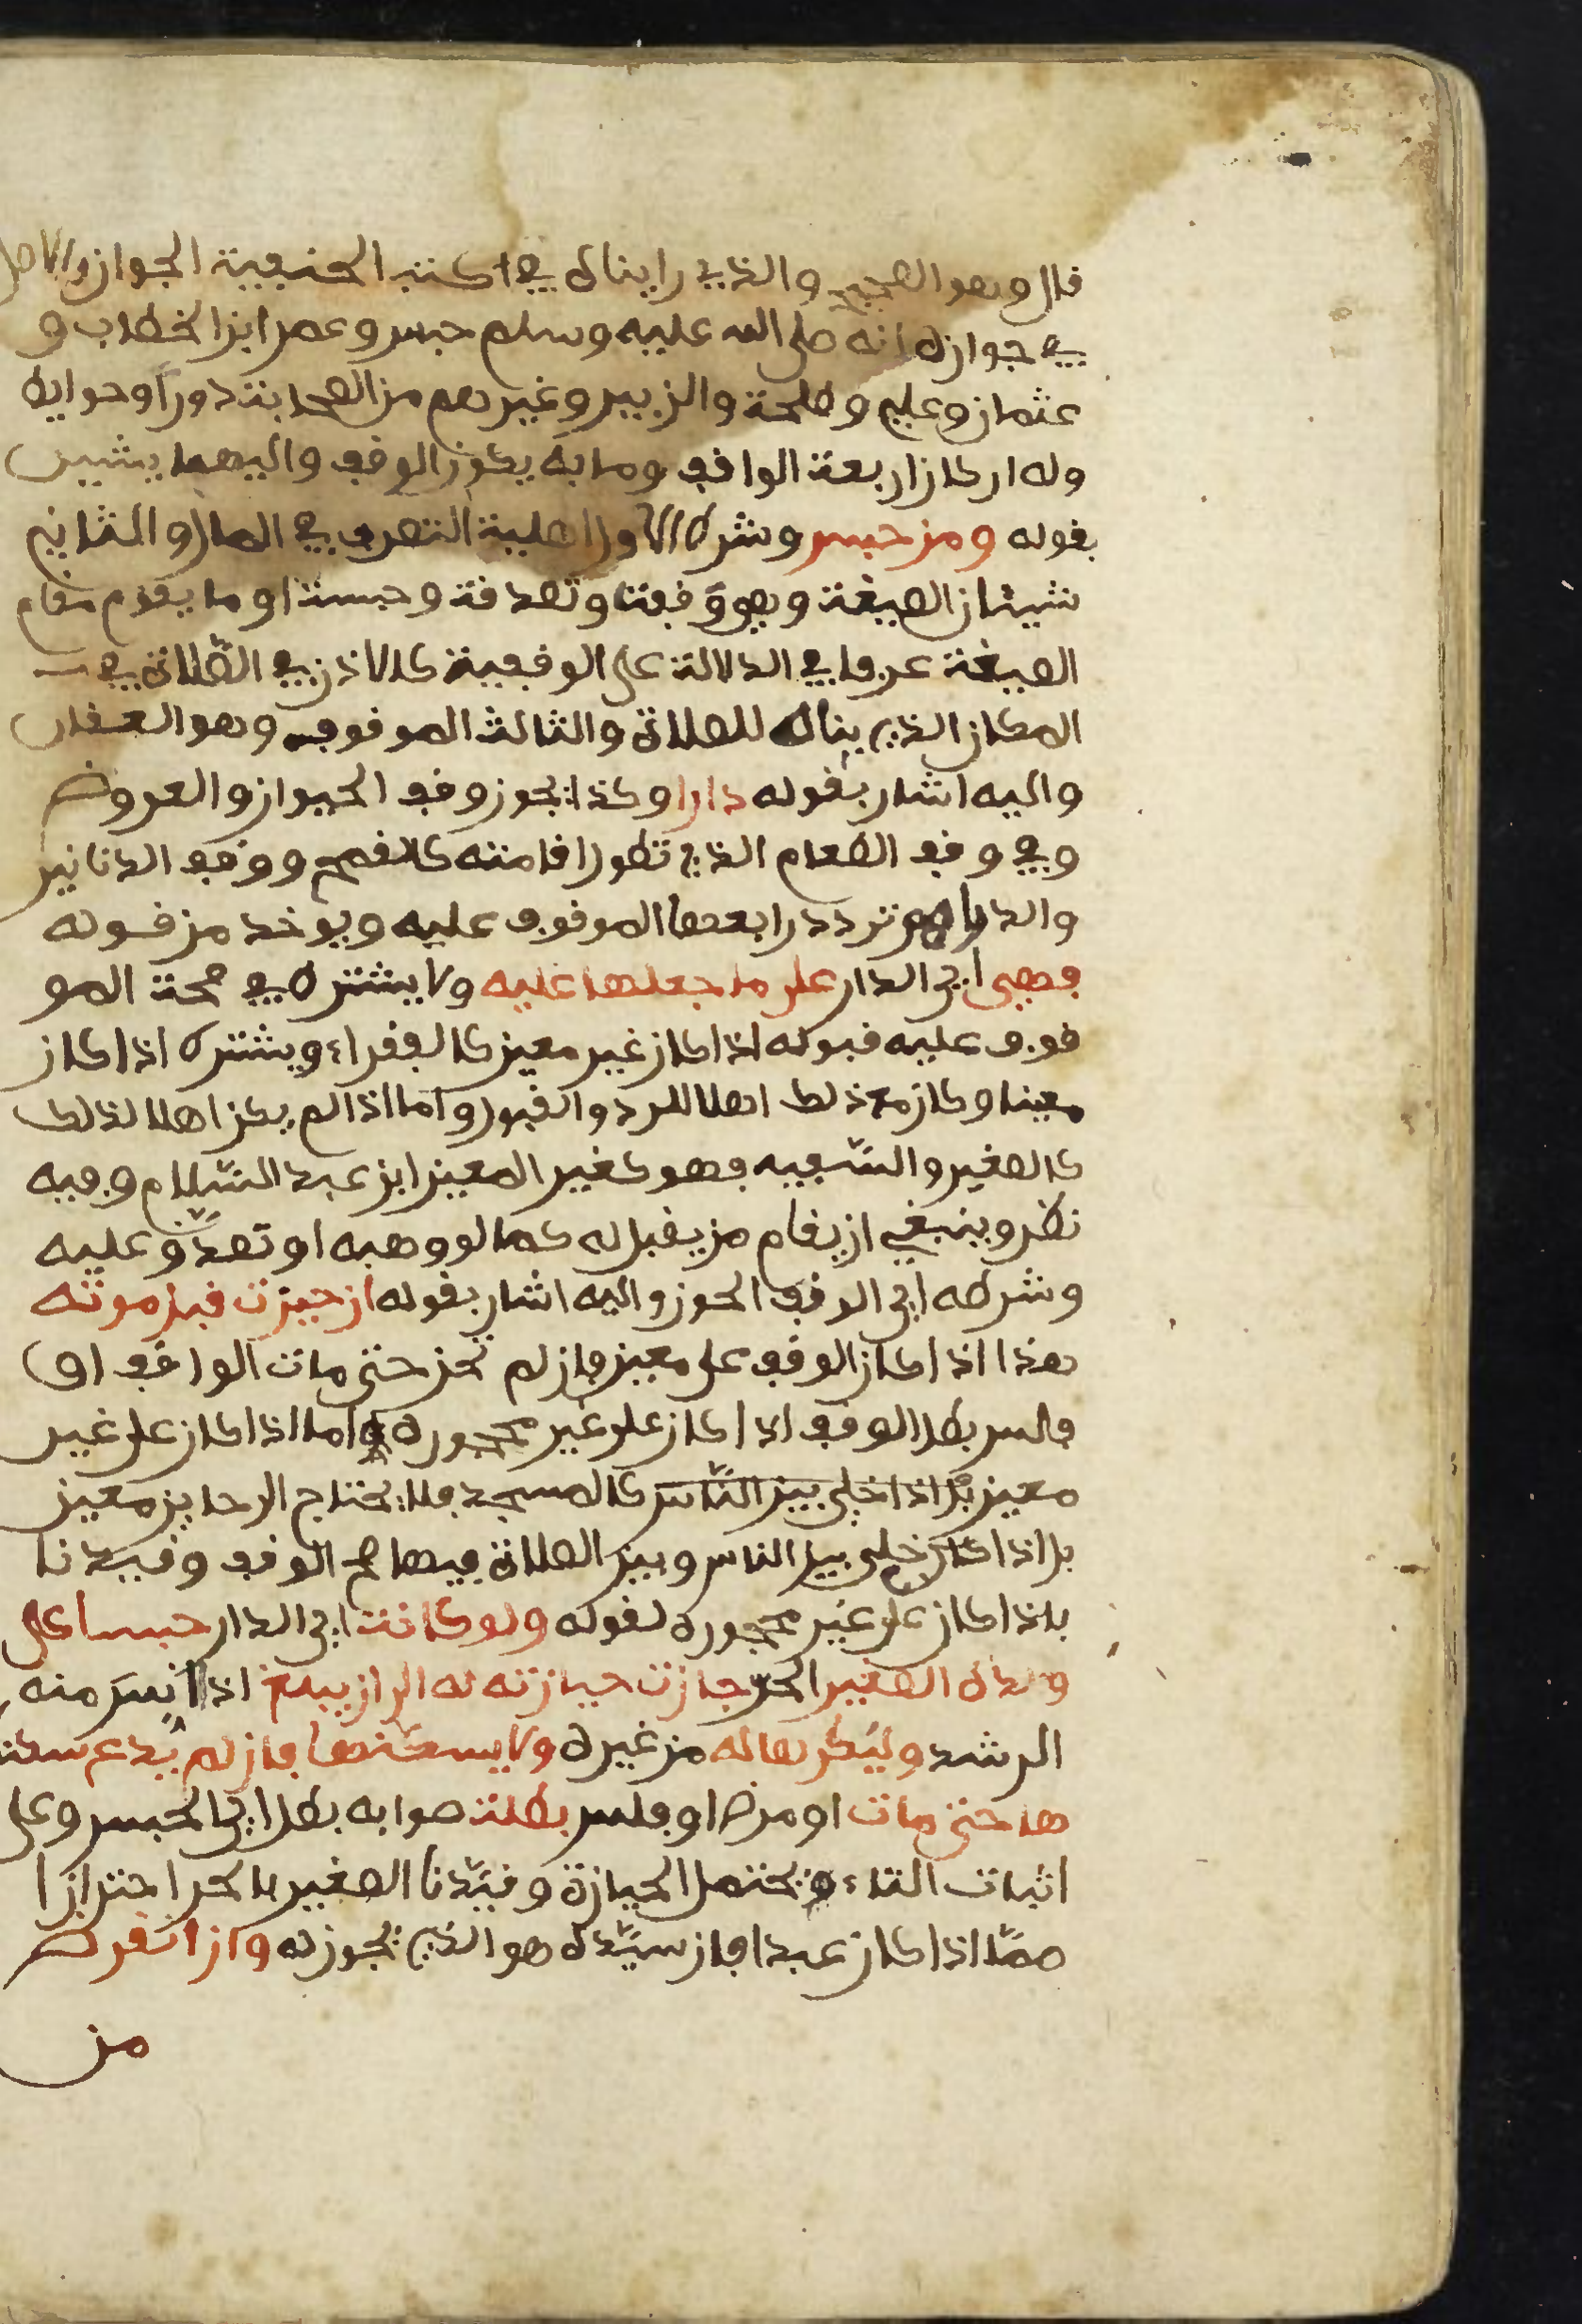 قال وهو الصحيح والذي رايناه في اكتب الحنفية الجواز والاصل
في جوازه انه صلى الله عليه وسلم حبس وعمر ابن الخطاب و
عثمان وعلي وطلحة والزبير وغيرهم من الصحابة دورا وحوايط
وله اركان اربعة الواقف وما به يكون الوقف واليهما يشير
بقوله ومن حبس وشرط الاول اهلية التصرف في المال والثاني
شيئان الصيغة وهو وقفت وتصدقت وحبست او ما يقوم مقام
الصيغة عرفا في الدلالة على الوقفية كالاذن في الصلاة في
المكان الذي بناه للصلاة والثالث الموقوف وهو العقار
واليه اشار بقوله دارا وكذا يجوز وقف الحيوان والعروض
وفي وقف الطعام الذي تطول اقامته كالقمح ووقف الدنانير
والدراهم تردد رابعها الموقوف عليه ويوخد من قوله
فهي اي الدار على ما جعلها عليه ولا يشترط في صحة المو
قوف عليه قبوله اذا كان غير معين كالفقراء ويشترط اذا كان
معينا وكان مع ذلك اهلا للرد والقبول واما اذا لم يكن اهلا لذلك
كالصغير والسفيه فهو كغير المعين ابن عبد السلام وفيه
نظر وينبغي ان يقام من يقبل له كما لو وهبه او تصدق عليه
وشرطه اي الوقف الحوز واليه اشار بقوله ان حيزت قبل موته
هذا اذا كان الوقف على معين فان لم تحز حتى مات الواقف او
فلس بطل الوقف اذا كان على غير محجوره واما اذا كان على غير
معين بل اذا خلي بين الناس كالمسجد فلا يحتاج الى حايز معين
بل اذا خلي بين الناس وبين الصلاة فيها صح الوقف وقيدنا
بلذا كان على غير محجوره لقوله ولو كانت اي الدار حبسا على
ولده الصغير الحر جازت حيازته له الى ان يبلغ اذا انس منه
الرشد وليكرها له من غيره ولا يسكنها فان لم يدع سكنا
ها حتى مات او مرض او فلس بطلت صوابه بطل اي الحبس وعلى
اثبات التاء يحتمل الحيازة وقيدنا الصغير بالحر احترازا
مما اذا كان عبدا فان سيده هو الذي يحوز له وان انقرض
من